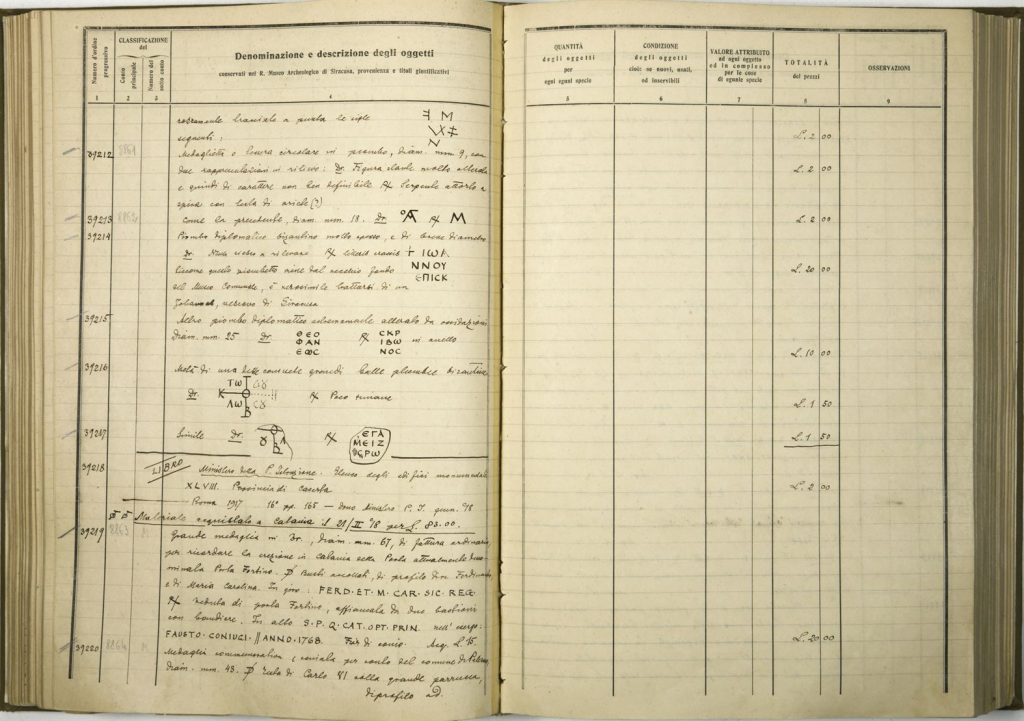 CLASSIFICAZIONE
del
Numero d'ordine
progressivo
Conto
principale
Numero del
sotto conto
Denominazione e descrizione degli oggetti
conservati nel R. Museo Archeologico di Siracusa, provenienza e titoli giustificativi
1 2 3 4
segnenti:
39212 Medaglietta o tessera circolare in piombo, diam. mm. 9, con
due rappresentazioni in rilievo: Dr. Figura stante molto alterata
e quindi di carattere non ben definibile. R/ Serpente attorto a
spira con testa di ariete (?)
39213 Come la precedente, diam. mm. 18. Dr. R/ M
39214 Piombo diplomatico bizantino molto spesso, e di breve diametro
Dr. R/ † ΙWΑ
Siccome questo piombetto viene dal vecchio fondo ΝΝΟΥ
del Museo Comunale, è verosimile trattarsi di un ΕΠΙCΚ
Johannes, vescovo di Siracusa
39215 Altro piombo diplomatico estremamente alterato da ossidazione
Diam. mm. 25 Dr. ΘΕΟ R/ CΚΡ
ΦΑΝ ΙΒW in anello
ΕΦC ΝΟC
39216 Metà di una delle consuete grandi bulle plumbee bizantine
Dr. ΤW Κ ΛW Β R/ Poco rimane
39217 Simile Dr. R/ ΕΓΑ
ΜΕΙΖ
39218 LIBRO Ministero della P. Istruzione. Elenco degli edifici monumentali
XLVIII. Provincia di Caserta
Roma 1917 16° pp. 165 — Dono Ministro P. I. genn. '18
Materiale acquistato a Catania il 21/II '18 per L. 83.00.
39219 8863 M Grande medaglia in Br., diam. mm. 67, di fattura ordinaria,
per ricordare la erezione in Catania della Porta attualmente deno-
minata Porta Fortino. D/ Busti accollati, di profilo di re Ferdinando
e di Maria Carolina. In giro: FERD·ET·M·CAR·SIC·REGE·
R/ veduta di porta Fortino, affiancata da due bastioni
con bandiere. In alto S·P·Q·CAT·OPT·PRIN. nell'esergo:
FAUSTO·CONIUGI·//ANNO·1768. Fior di conio. Acq. L. 15
39220 8864 M Medaglia commemorativa, coniata per conto del comune di Palermo,
diam. mm. 43. D/ Testa di Carlo VI colla grande parrucca,
di profilo ad.
QUANTITÀ
degli oggetti
per
ogni egual specie
5
CONDIZIONE
degli oggetti
cioè: se nuovi, usati,
ed inservibili
6
VALORE ATTRIBUITO
ad ogni oggetto
ed in complesso
per le cose
di eguale specie
7
TOTALITÀ
dei prezzi
8
OSSERVAZIONI
9
L. 2 00
L. 2 00
L. 2 00
L. 20 00
L. 10 00
L. 1 50
L. 1 50
L. 2 00
L. 20 00